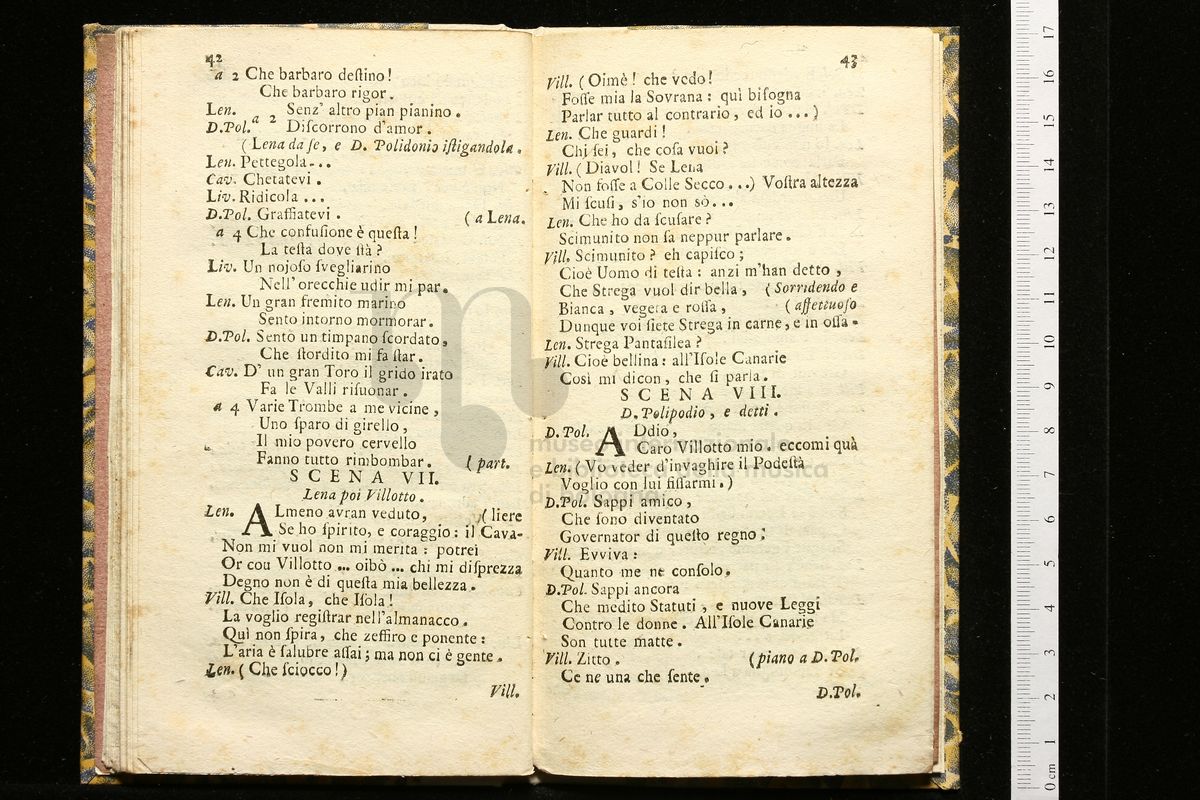 42
a 2 Che barbaro deſtino!
Che barbaro rigor.
Len. a 2 Senz' altro pian pianino.
D.Pol. Diſcorrono d'amor.
(Lena da ſe, e D. Polidonio iſtigandola.
Len. Pettegola...
Cav. Chetatevi.
Liv. Ridicola ...
D.Pol. Graffiatevi. (a Lena.
a 4 Che confuſione è queſta!
La teſta dove ſtà?
Liv. Un nojoſo ſvegliarino
Nell' orecchie udir mi par.
Len. Un gran fremito marino
Sento intorno mormorar.
D.Pol. Sento un timpano ſcordato,
Che ſtordito mi fa ſtar.
Cav. D' un gran Toro il grido irato
Fa le Valli riſuonar.
a 4 Varie Trombe a me vicine,
Uno ſparo di girello,
Il mio povero cervello
Fanno tutto rimbombar. (part.
SCENA VII.
Lena poi Villotto.
Len. ALmeno avran veduto, (liere
Se ho ſpirito, e coraggio: il Cava-
Non mi vuol non mi merita: potrei
Or con Villotto ... oibò ... chi mi diſprezza
Degno non è di queſta mia bellezza.
Vill. Che Iſola, che Iſola!
La voglio regiſtrar nell'almanacco.
Quì non ſpira, che zeffiro e ponente:
L'aria è ſalubre aſſai; ma non ci è gente.
Len. (Che ſciocco!)
Vill.
43
Vill. (Oimè! che vedo!
Foſſe mia la Sovrana: quì biſogna
Parlar tutto al contrario, ed io ...)
Len. Che guardi!
Chi ſei, che coſa vuoi?
Vill. (Diavol! Se Lena
Non foſſe a Colle Secco...) Voſtra altezza
Mi ſcuſi, s'io non sò...
Len. Che ho da ſcuſare?
Scimunito non ſa neppur parlare.
Vill. Scimunito? eh capiſco;
Cioè Uomo di teſta: anzi m'han detto,
Che Strega vuol dir bella, (Sorridendo e
Bianca, vegera e roſſa, (affettuoſo
Dunque voi ſiete Strega in carne, e in oſſa.
Len. Strega Pantaſilea?
Vill. Cioè bellina: all'Iſole Canarie
Così mi dicon, che ſi parla.
SCENA VIII.
D. Polipodio, e detti.
D. Pol. ADdio,
Caro Villotto mio. eccomi quà
Len. (Vo veder d'invaghire il Podeſtà
Voglio con lui fiſſarmi.)
D.Pol. Sappi amico,
Che ſono diventato
Governator di queſto regno;
Vill. Evviva:
Quanto me ne conſolo.
D.Pol. Sappi ancora
Che medito Statuti, e nuove Leggi
Contro le donne. All'Iſole Canarie
Son tutte matte.
Vill. Zitto. (piano a D. Pol.
Ce ne una che ſente.
D.Pol.